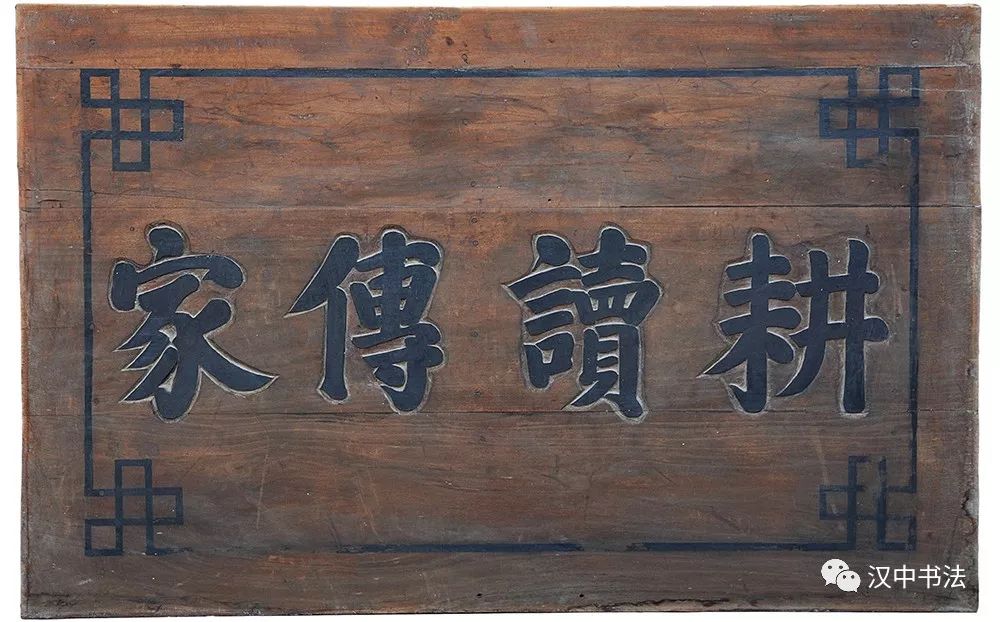 耕讀傳家
汉中书法